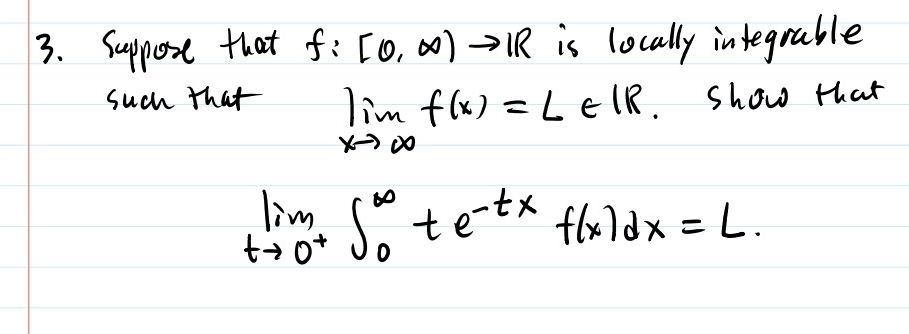 3. Suppose that f: [0, ∞) → ℝ is locally integrable
such that lim f(x) = L ∈ ℝ. Show that
x→∞
lim ∫₀^∞ t e^{-tx} f(x) dx = L.
t→0⁺